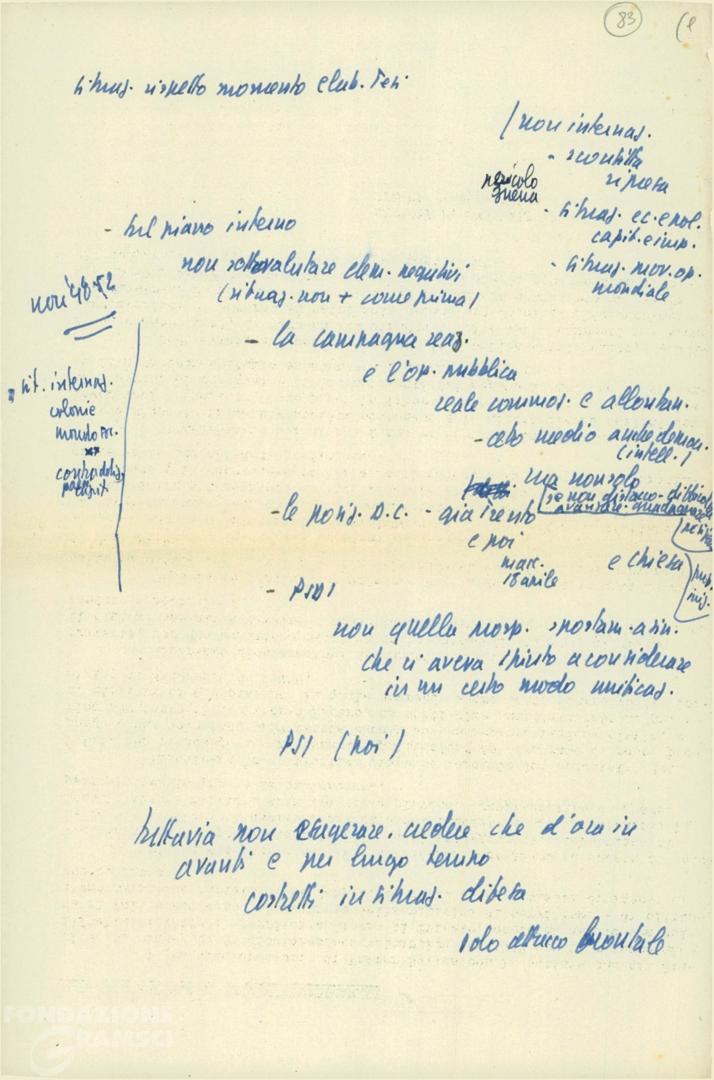 83
situaz. rispetto momento elab. Tesi
(non internaz.
- sconfitta
ripresa
pericolo
guerra
- situaz. ec. e pol.
capit. e imp.
- situaz. mov. op.
mondiale
- Sul piano interno
non sottovalutare elem. negativi
(situaz. non + come prima)
non '48-52
- sit. internaz.
colonie
mondo soc.
contradd.
capit
- la campagna reaz.
e l'op. pubblica
reale commoz. e allontan.
- ceto medio anche deman.
(intell.)
ma non solo
se non distacco
avanzare
- le posiz. D.C. - già Trento
e poi
marc.
18 aprile
e chiesa
- PSDI
non quella prosp. spostam. a sin.
che ci aveva spinto a considerare
in un certo modo unificaz.
PSI (noi)
tuttavia non esagerare. credere che d'ora in
avanti e per lungo termine
costretti in situaz. difesa
solo attacco frontale
FONDAZIONE
GRAMSCI